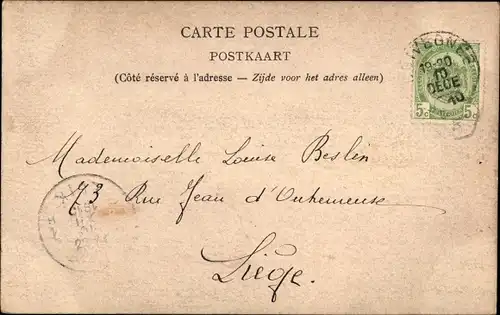 CARTE POSTALE
POSTKAART
(Côté réservé à l'adresse — Zijde voor het adres alleen)
19-20
10
DECE
10
5c 5c
Mademoiselle Louise Beslin
73 Rue Jean d'Outremeuse
Liège.